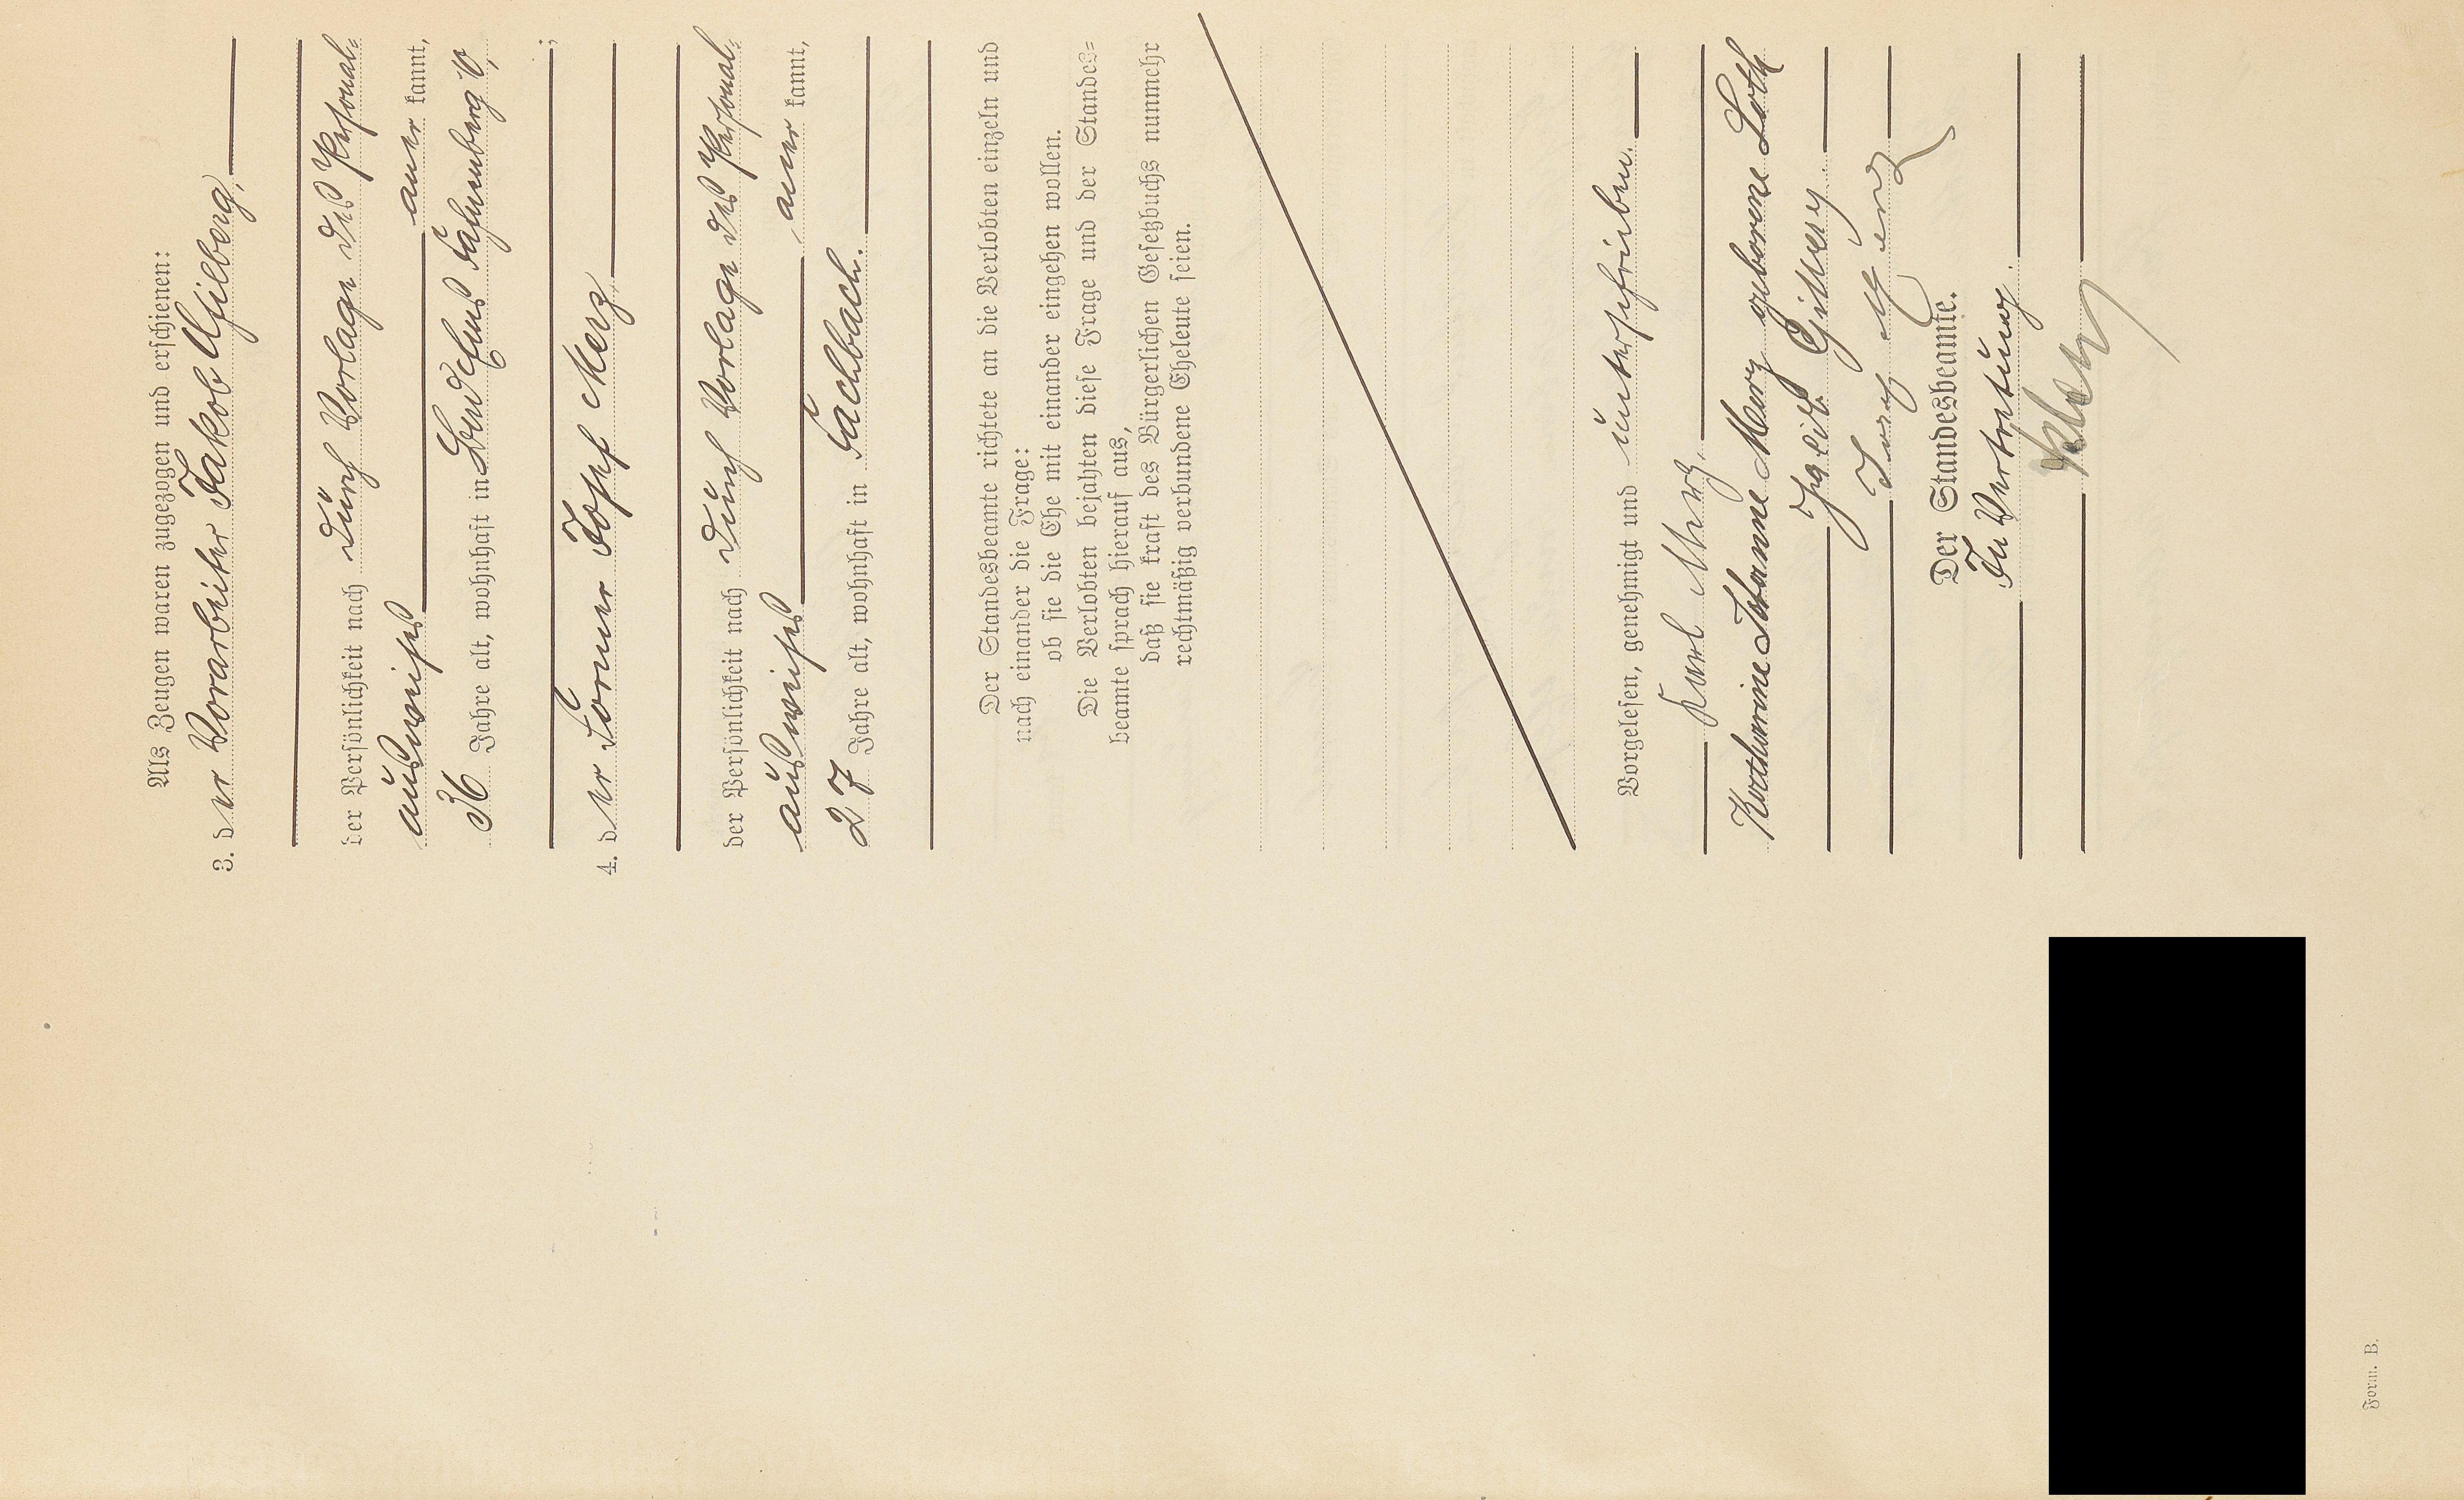 Als Zeugen waren zugezogen und erschienen:
3. der Vorarbeiter Jakob Hilberg,
der Persönlichkeit nach durch Vorlage des Personal-
ausweises anerkannt,
36 Jahre alt, wohnhaft in
4. der Former Josef Merz
der Persönlichkeit nach durch Vorlage des Personal-
ausweises anerkannt,
27 Jahre alt, wohnhaft in Fachbach.
Der Standesbeamte richtete an die Verlobten einzeln und
nach einander die Frage:
ob sie die Ehe mit einander eingehen wollen.
Die Verlobten bejahten diese Frage und der Standes-
beamte sprach hierauf aus,
daß sie kraft des Bürgerlichen Gesetzbuchs nunmehr
rechtmäßig verbundene Eheleute seien.
Vorgelesen, genehmigt und unterschrieben.
Karl Merz.
Katharine Johanne Merz geborene Loth
Josef Merz
Der Standesbeamte.
In Vertretung.
Form. B.